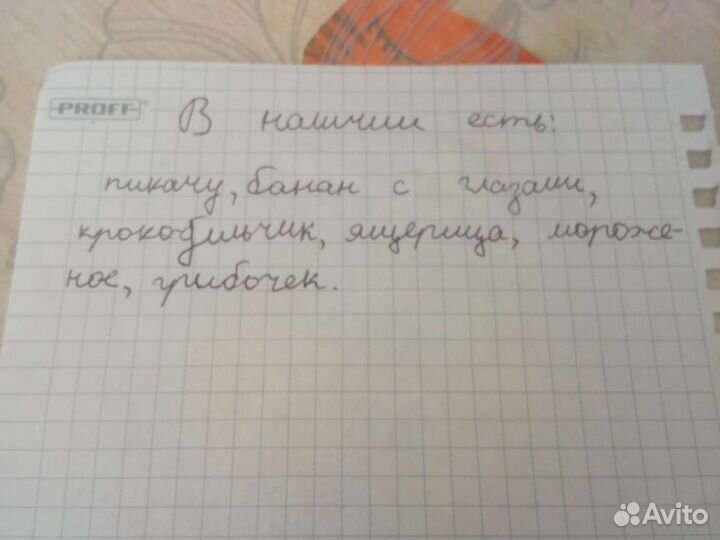 PROFF
В наличии есть:
пикачу, банан с глазами,
крокодильчик, ящерица, мороже-
ное, грибочек.
Avito